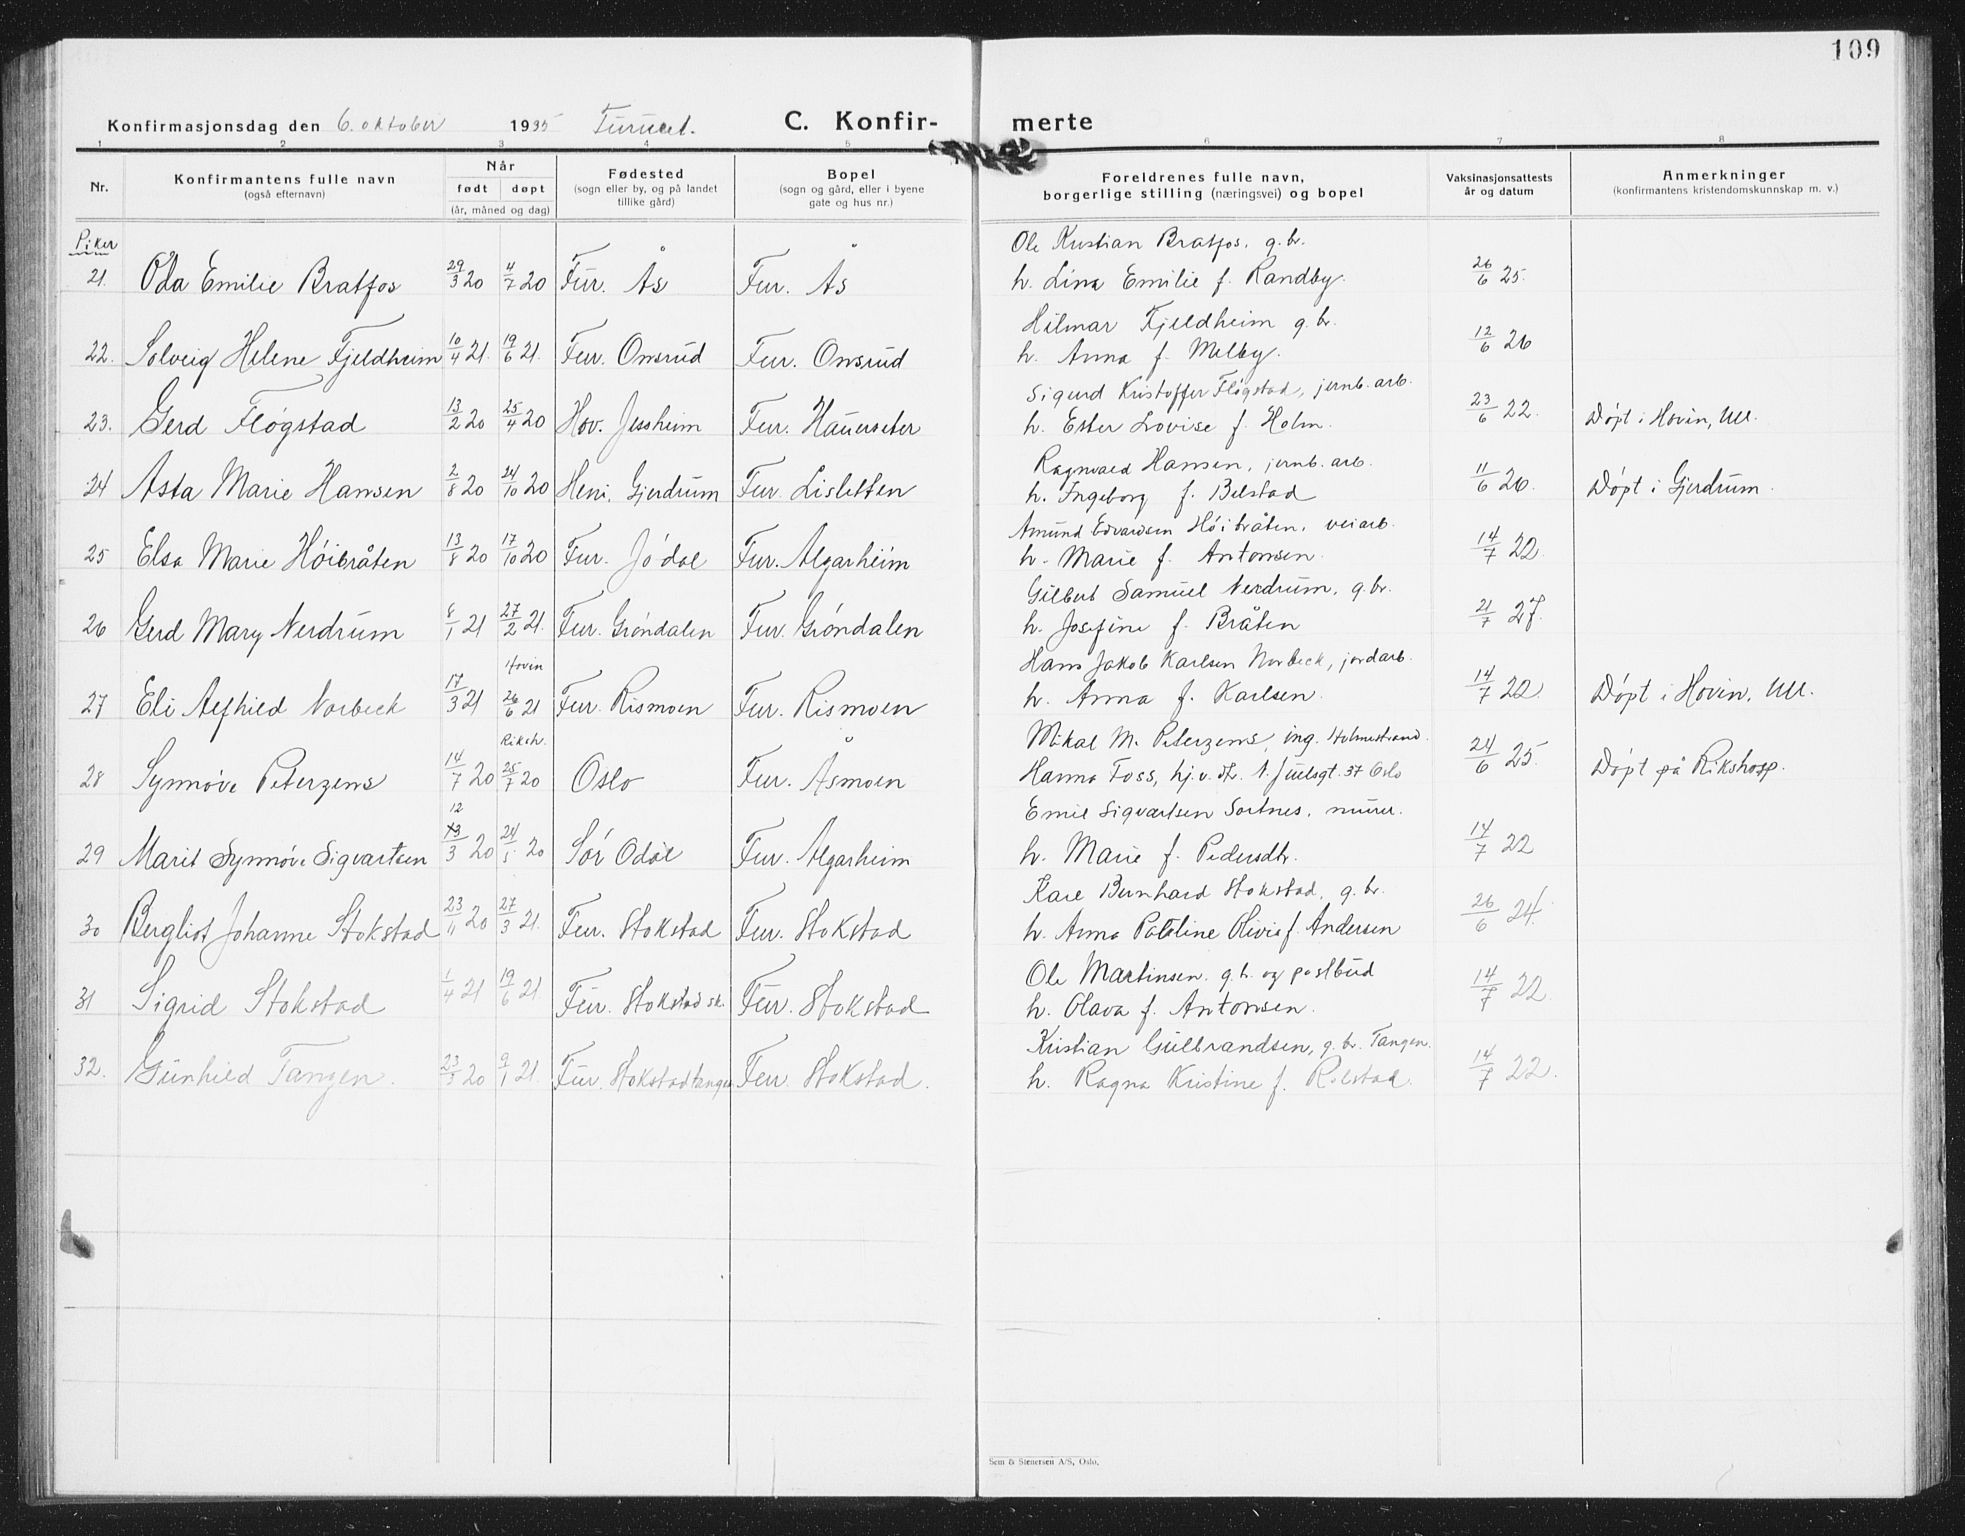 109
Konfirmasjonsdag den 6. oktober 1935 Furuset.
C. Konfir- merte
1 2 3 4 5 6 7 8
Nr.
Konfirmantens fulle navn
(også efternavn)
Når
født døpt
(år, måned og dag)
Fødested
(sogn eller by, og på landet
tillike gård)
Bopel
(sogn og gård, eller i byene
gate og hus nr.)
Foreldrenes fulle navn,
borgerlige stilling (næringsvei) og bopel
Vaksinasjonsattests
år og datum
Anmerkninger
(konfirmantens kristendomskunnskap m. v.)
Piker
Ole Kristian Bratfos, g.br.
21. Oda Emilie Bratfos 29/3 20 4/7 20 Fur. Ås Fur. Ås h. Lina Emilie f. Randby. 26/6 25.
Hilmar Fjeldheim g.br.
22. Solveig Helene Fjeldheim 10/4 21. 19/6 21. Fur. Onsrud Fur. Onsrud h. Anna f. Melby. 12/6 26
Sigurd Kristoffer Fløgstad, jernb.arb.
23. Gerd Fløgstad 13/2 20 25/4 20 Hov. Jessheim Fur. Hauerseter h. Ester Lovise f. Holm. 23/6 22. Døpt i Hovin, Ull.
Ragnvald Hansen, jernb.arb.
24 Asta Marie Hansen 2/8 20 24/10 20 Heni, Gjerdrum Fur. Lisletten h. Ingeborg f. Bilstad 11/6 26. Døpt i Gjerdrum.
Amund Edvardsen Høibråten, veiarb.
25 Elsa Marie Høibråten 13/8 20 17/10 20 Fur. Jódal Fur. Algarheim h. Marie f. Antonsen. 14/7 22.
Gilbert Samuel Nerdrum, g.br.
26 Gerd Mary Nerdrum 8/1 21 27/2 21. Fur. Grøndalen Fur. Grøndalen h. Josefine f. Bråten 21/7 27.
Hovin
Hans Jakob Karlsen Norbeck, jordarb.
27 Eli Alfhild Norbeck 17/3 21 26/6 21 Fur. Rismoen Fur. Rismoen h. Anna f. Karlsen. 14/7 22. Døpt i Hovin, Ull.
Riksh.
Mikal M. Peterzens, ing. Holmestrand.
28 Synnøve Peterzens 14/7 20 25/7 20 Oslo Fur. Åsmoen Hanna Foss, hj.v. str. N. Juulsgt. 37 Oslo 24/6 25. Døpt på Rikshosp.
12
Emil Sigvartsen Sortnes, murer.
29 Marit Synnøve Sigvartsen 13/3 20 24/5 20 Sør Odal Fur. Algarheim h. Marie f. Pedersdtr. 14/7 22
Kare Bernhard Stokstad, g.br.
30 Bergliot Johanne Stokstad 23/11 20 27/3 21. Fur. Stokstad Fur. Stokstad h. Anna Pauline Olivie f. Andersen 26/6 24.
Ole Martinsen. g.br. og postbud
31 Sigrid Stokstad 1/4 21 19/6 21 Fur. Stokstad sk. Fur. Stokstad h. Olava f. Antonsen. 14/7 22.
Kristian Gulbrandsen, g.br. Tangen.
32. Gunhild Tangen. 23/3 20 9/1 21. Fur. Stokstadtangen Fur. Stokstad. h. Ragna Kristine f. Rolstad. 14/7 22.
Sem & Stenersen A/S, Oslo.